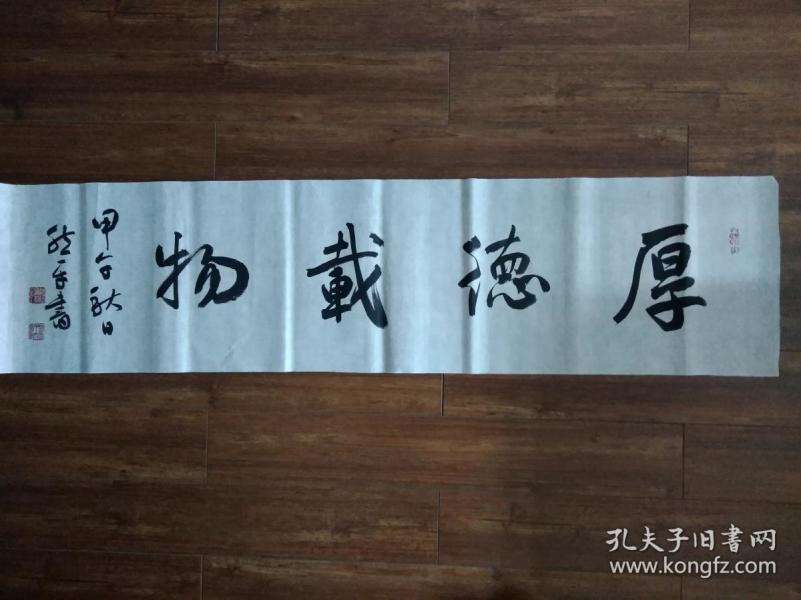 厚德載物
甲午秋日
孔夫子旧書网
www.kongfz.com